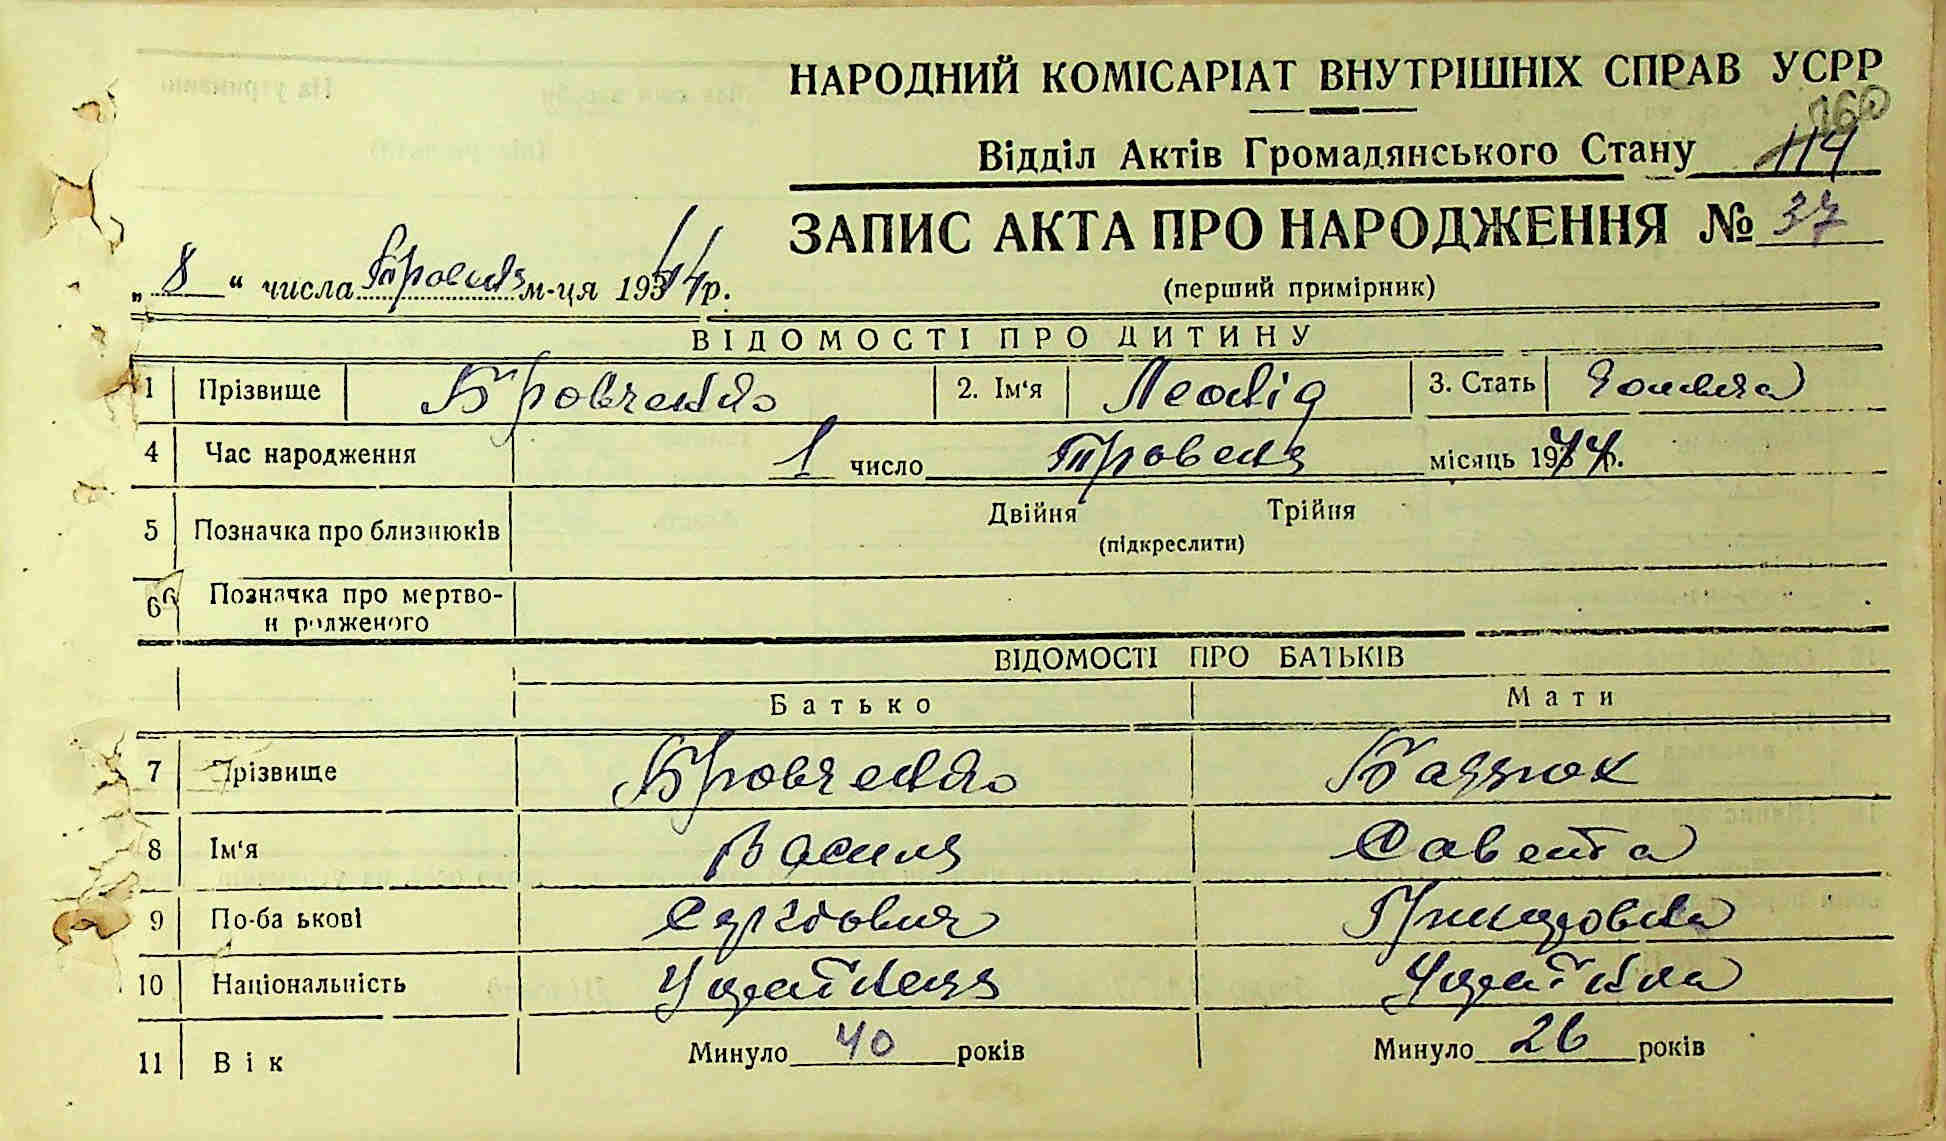 НАРОДНИЙ КОМІСАРІАТ ВНУТРІШНІХ СПРАВ УСРР
160
Відділ Актів Громадянського Стану 114
ЗАПИС АКТА ПРО НАРОДЖЕННЯ № 37
(перший примірник)
„ 8 “ числа Травня м-ця 1944 р.
ВІДОМОСТІ ПРО ДИТИНУ
1 Прізвище Бровченко 2. Ім'я Леонід 3. Стать
4 Час народження 1 число Травня місяць 1944 р.
5 Позначка про близнюків Двійня Трійня
(підкреслити)
6 Позначка про мертво-
н родженого
ВІДОМОСТІ ПРО БАТЬКІВ
Батько Мати
7 Прізвище Бровченко
8 Ім'я Василь
9 По-ба ькові Сергійович
10 Національність Українець Українка
11 Вік Минуло 40 років Минуло 26 років